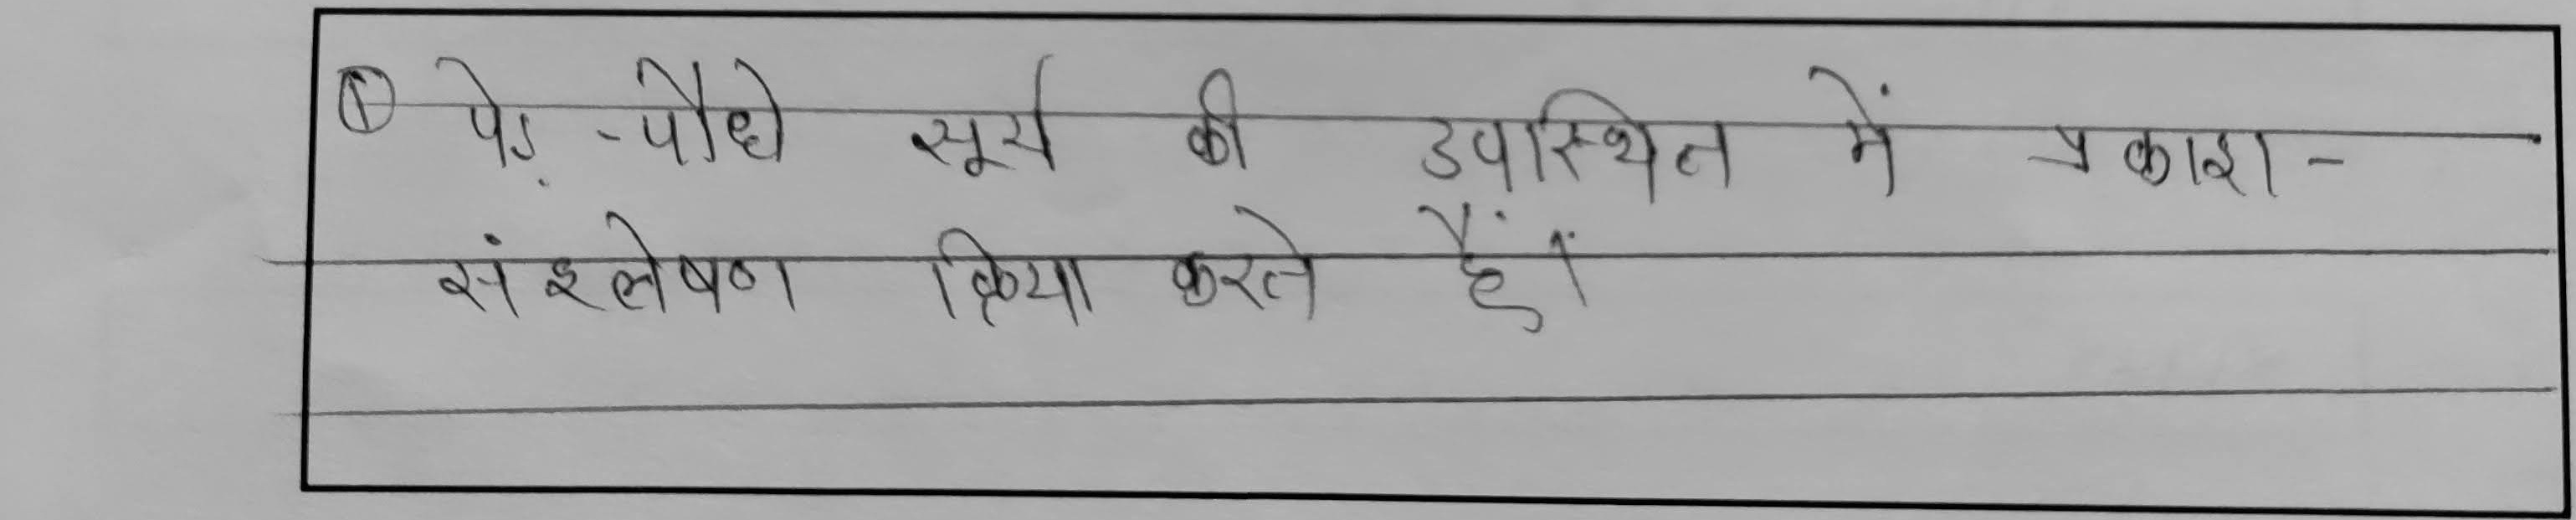 ① पेड़ -पौधे सूर्य की उपस्थित में प्रकाश-
संश्लेषण क्रिया करते हैं।